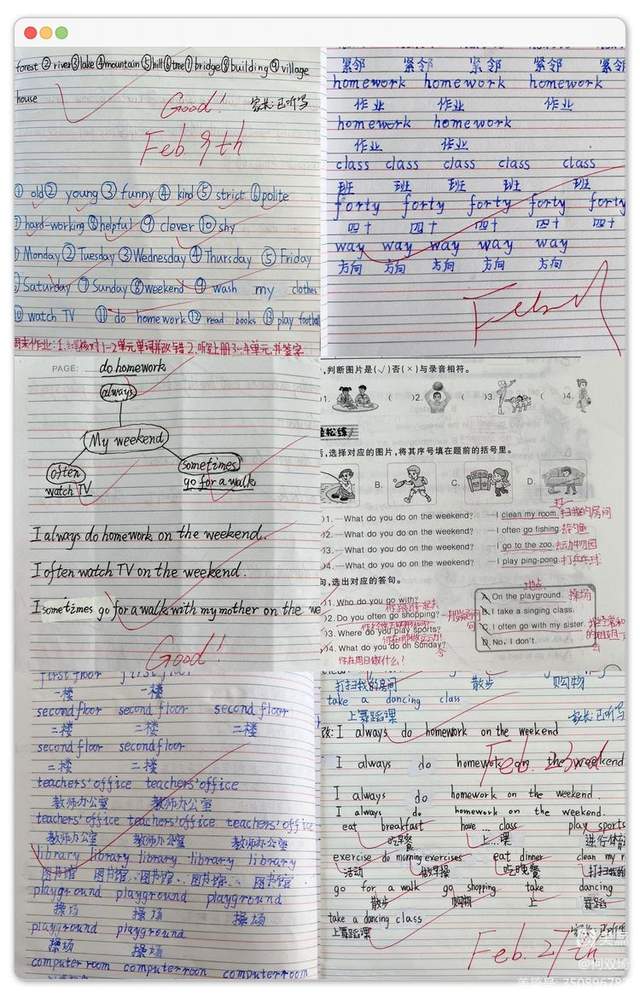 forest ② river ③ lake ④ mountain ⑤ hill ⑥ tree ⑦ bridge ⑧ building ⑨ village
house
Good!
家长:已听写
Feb 9th
① old ② young ③ funny ④ kind ⑤ strict ⑥ polite
hard-working ⑧ helpful ⑨ clever ⑩ shy
Monday ② Tuesday ③ Wednesday ④ Thursday ⑤ Friday
Saturday ⑦ Sunday ⑧ weekend ⑨ wash my clothes
⑩ watch TV ⑪ do homework ⑫ read books ⑬ play football
紧邻 紧邻 紧邻 紧邻 紧邻
homework homework homework
作业 作业 作业
homework homework
作业 作业
class class class class class
班 班 班 班 班
forty forty forty forty forty
四十 四十 四十 四十 四十
way way way way way
方向 方向 方向 方向 方向
PAGE:
do homework
always
My weekend
often
watch TV
sometimes
go for a walk
I always do homework on the weekend.
I often watch TV on the weekend.
I sometimes go for a walk with my mother on the we
Good!
,判断图片是(√)否(×)与录音相符。
)1. ( )2. ( )3. ( )4.
松练
,选择对应的图片,将其序号填在题前的括号里。
B. C. D.
)1. —What do you do on the weekend? —I clean my room. 打扫我的房间
)2. —What do you do on the weekend? —I often go fishing. 钓鱼
)3. —What do you do on the weekend? —I go to the zoo. 去动物园
)4. —What do you do on the weekend? —I play ping-pong. 打乒乓球
句,选出对应的答句。
)1. Who do you go with?
)2. Do you often go shopping?
)3. Where do you play sports?
)4. What do you do on Sunday?
你在周日做什么?
地点
A. On the playground. 操场
B. I take a singing class.
C. I often go with my sister.
D. No, I don't.
first floor first floor
一楼 一楼
second floor second floor second floor
二楼 二楼 二楼
second floor second floor
二楼 二楼
teachers' office teachers' office
教师办公室 教师办公室
teachers' office teachers' office teachers' office
教师办公室 教师办公室 教师办公室
library library library library library
图书馆 图书馆 图书馆 图书馆 图书馆
playground playground playground
操场 操场 操场
playground playground
操场 操场
computer room computer room computer room
打扫我的房间 散步 购物
take a dancing class
上舞蹈课
家长:已听写
改: I always do homework on the weekend
I always do homework on the weekend
Feb. 23rd
I always do homework on the weekend.
I always do homework on the weekend.
eat breakfast have ... class play sports
吃早餐 上...课 进行体
exercise do morning exercises eat dinner clean my r
活动 做早操 吃晚餐 打扫我的
go for a walk go shopping take dancing
散步 购物 上 舞蹈
take a dancing class
上舞蹈课
Feb. 27th